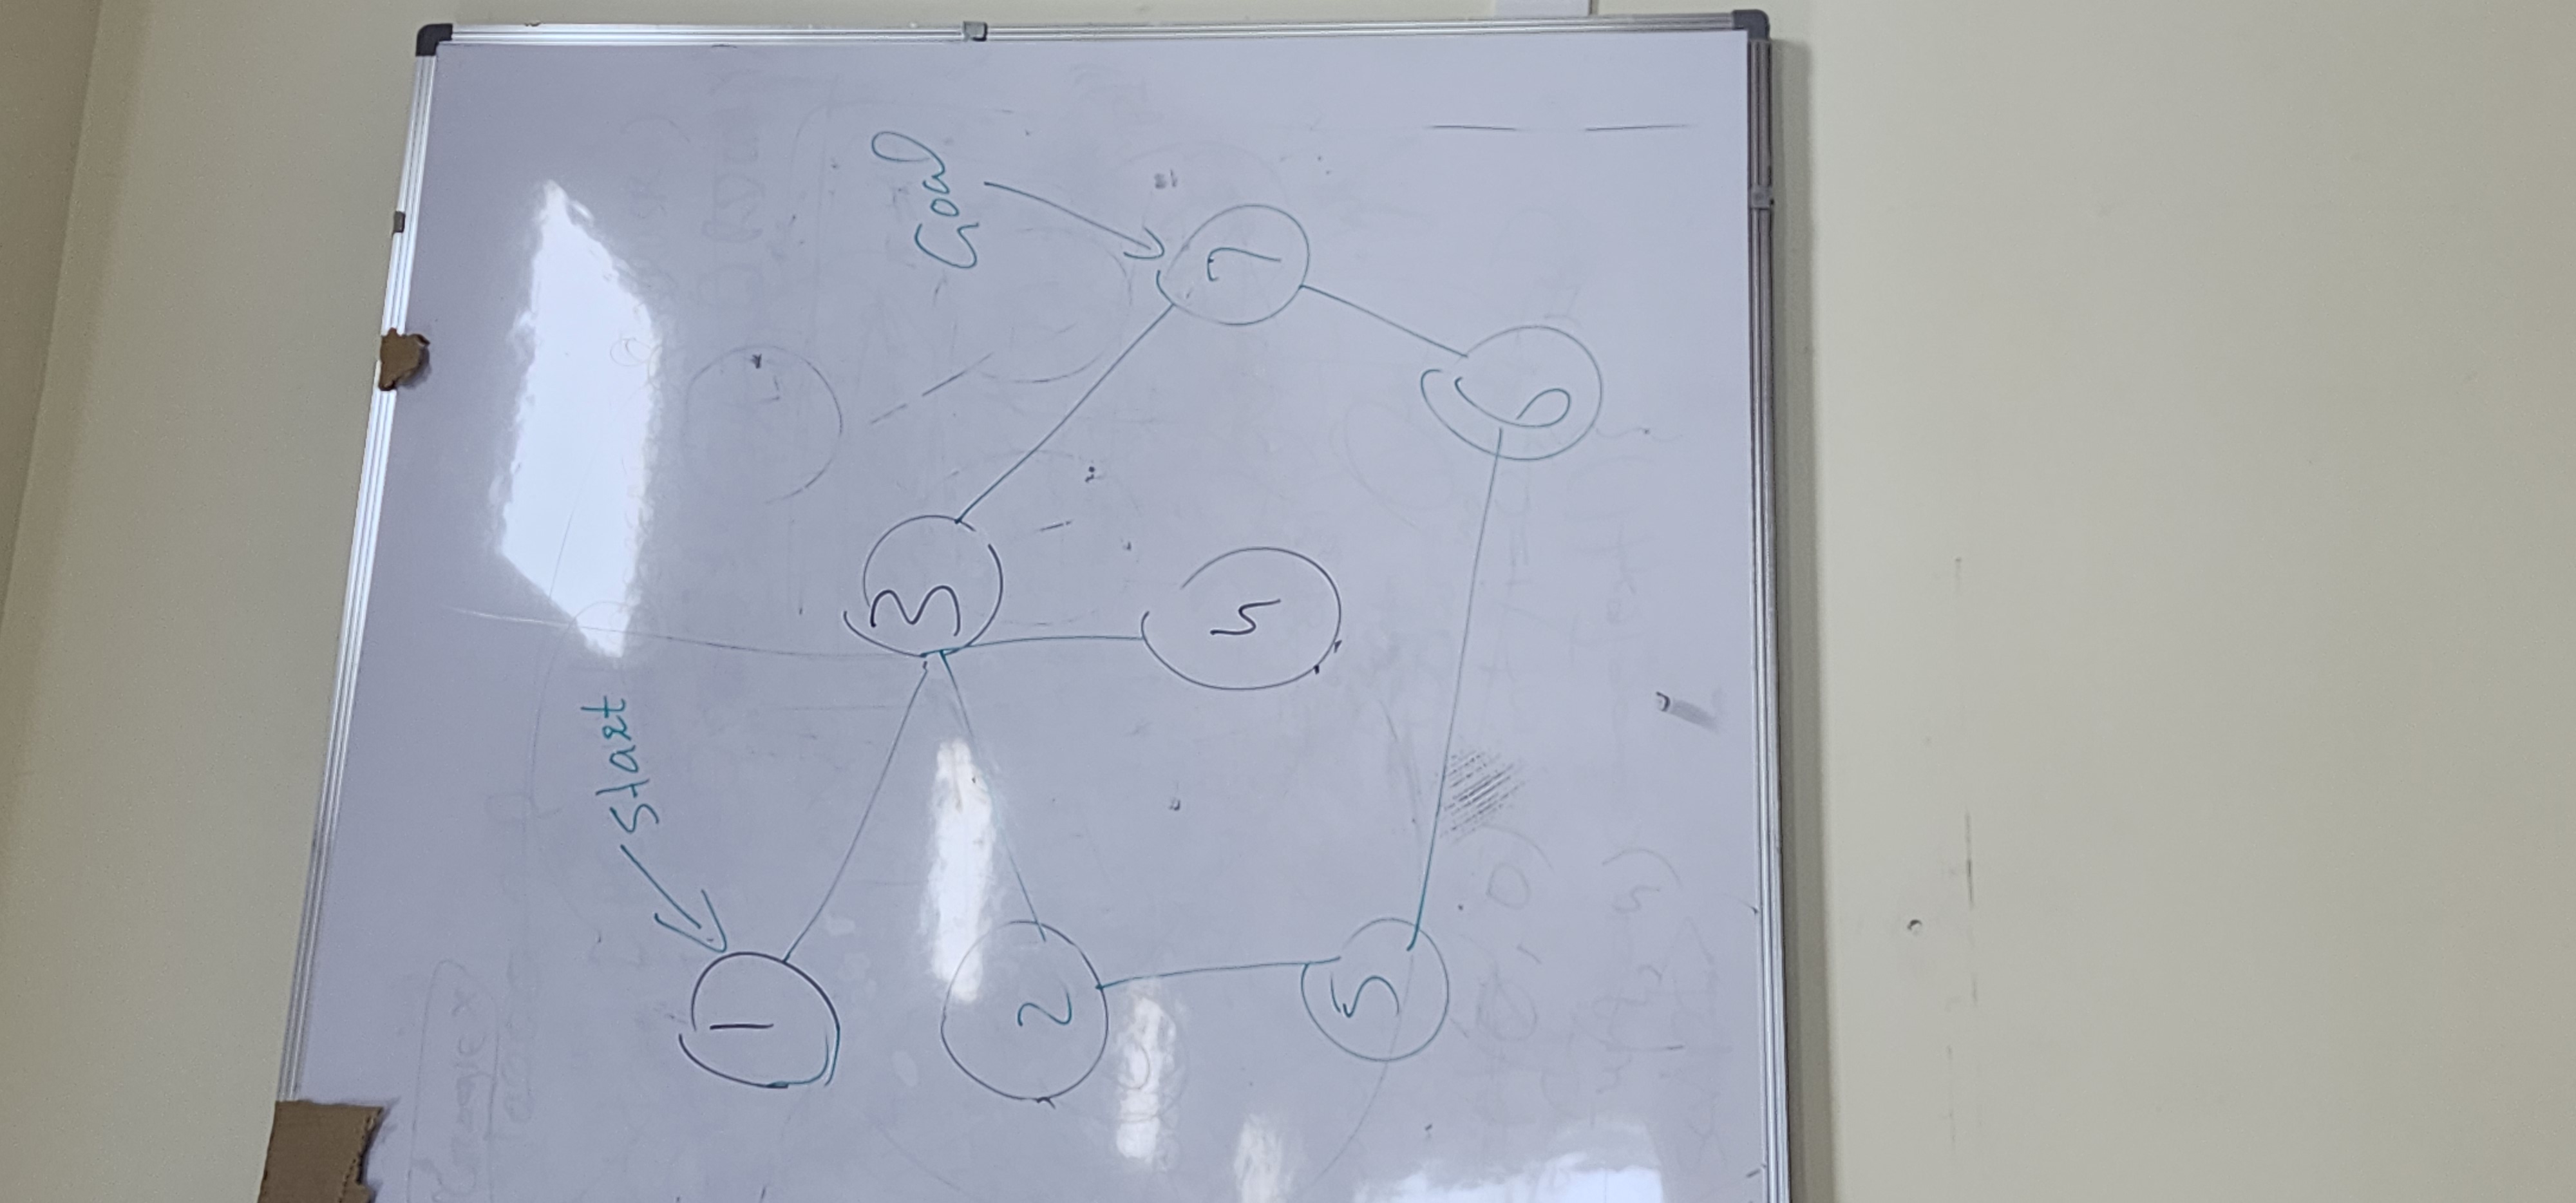 Start
1
3
Goal
2
4
7
5
6